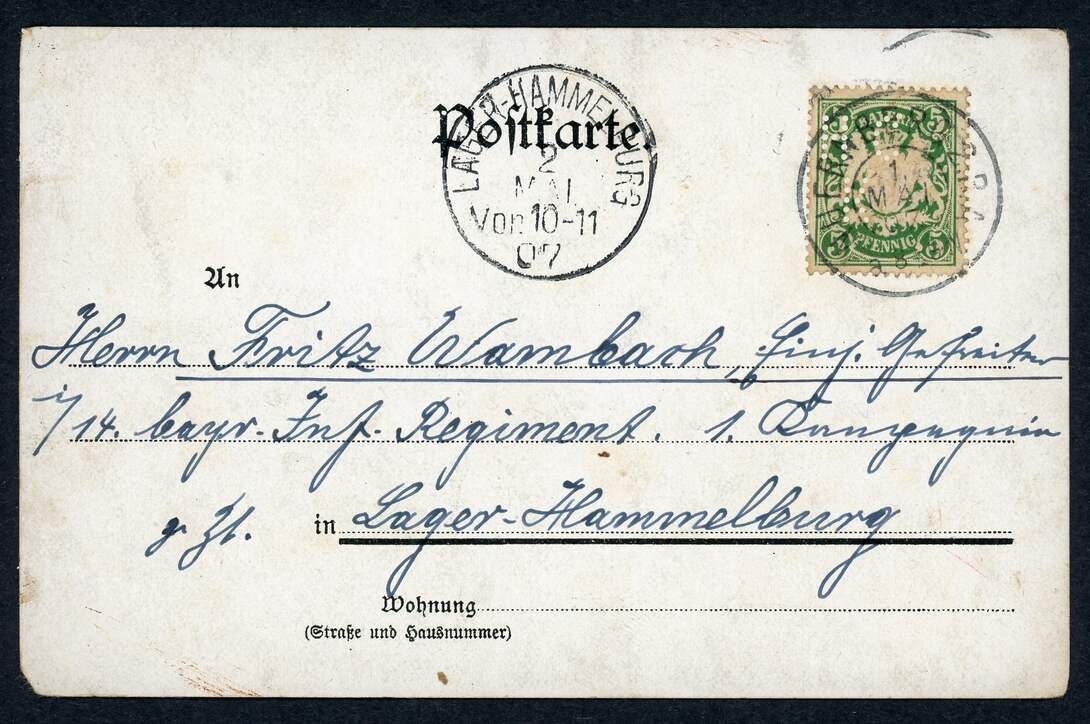 Postkarte.
LAGER-HAMMELBURG
2
MAI
Vor. 10-11
07
BAYERN
5 5
1
MAI
PFENNIG
5 5
An
Herrn Fritz Wambach, Einj. Gefreiter
i/14. bayr. Inf. Regiment. 1. Kompagnie
z. Zt. in Lager-Hammelburg
Wohnung
(Straße und Hausnummer)